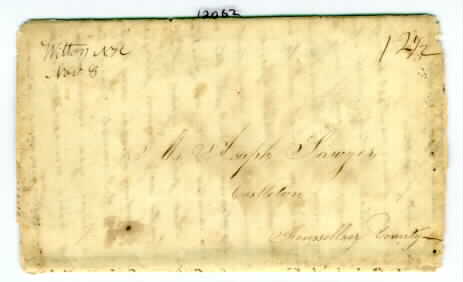 12062
Wilton NH
Nov 8
12½
Mr Joseph Sawyer
Castleton
Rensselaer County